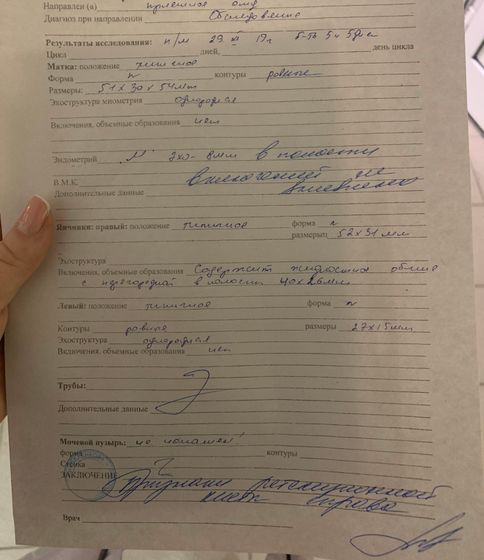 Направлен (а) приемное отд
Диагноз при направлении Обследование
Результаты исследования: п/м 29 XI 19г 5-6ть 5 дн
Цикл дней, день цикла
Матка: положение типичное
Форма N контуры ровные
Размеры: 51х30х54мм
Эхоструктура миометрия однородная
Включения, объемные образования нет
Эндометрий М эхо- 8мм в полости
В.М.К. включений не
Дополнительные данные выявлено
Яичники: правый: положение типичное форма N
размеры 52х31мм
Эхоструктура
Включения, объемные образования Содержит жидкостное обр
с перегородкой в полости 40х26мм
Левый: положение типичное форма N
Контуры ровные размеры 27х15мм
Эхоструктура однородная
Включения, объемные образования нет
Трубы:
Дополнительные данные
Мочевой пузырь: не
форма контуры
Стенка
ЗАКЛЮЧЕНИЕ Признаки ретенционной
кисты справа
Врач